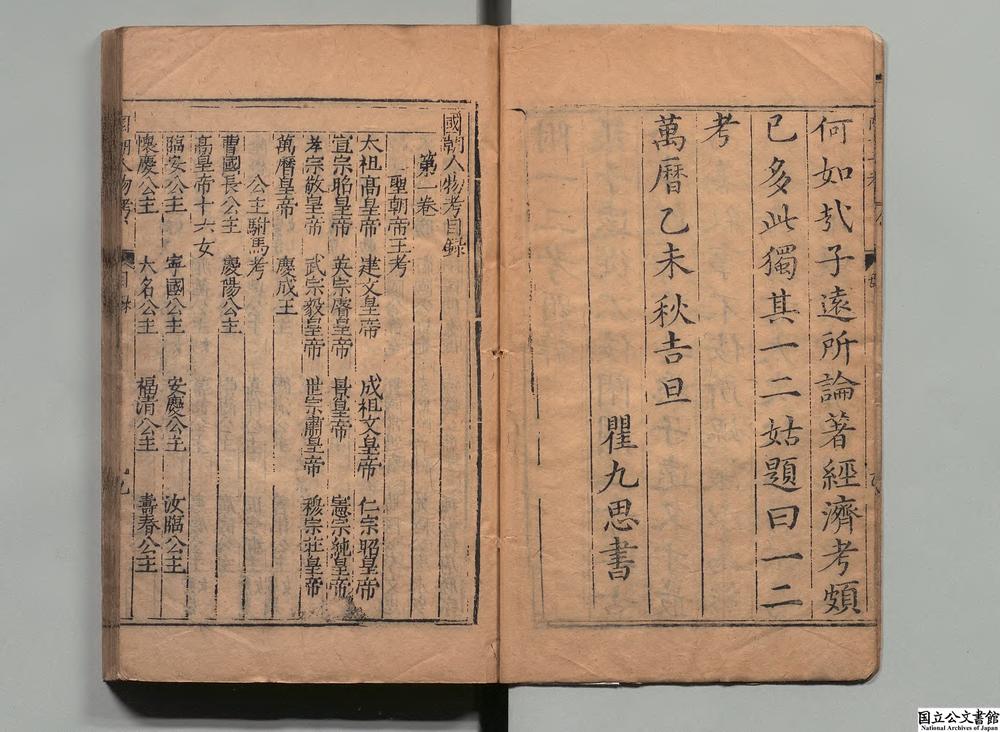 何如哉子遠所論著經濟考頗
已多此獨其一二姑題曰一二
考
萬曆乙未秋吉旦
瞿九思書
國朝人物考目錄
第一卷
聖朝帝王考
太祖高皇帝 建文皇帝 成祖文皇帝 仁宗昭皇帝
宣宗昭皇帝 英宗睿皇帝 景皇帝 憲宗純皇帝
孝宗敬皇帝 武宗毅皇帝 世宗肅皇帝 穆宗莊皇帝
萬曆皇帝 慶成王
公主駙馬考
曹國長公主 慶陽公主
高皇帝十六女
臨安公主 寧國公主 安慶公主 汝臨公主
懷慶公主 大名公主 福清公主 壽春公主
國朝人物考
国立公文書館
National Archives of Japan